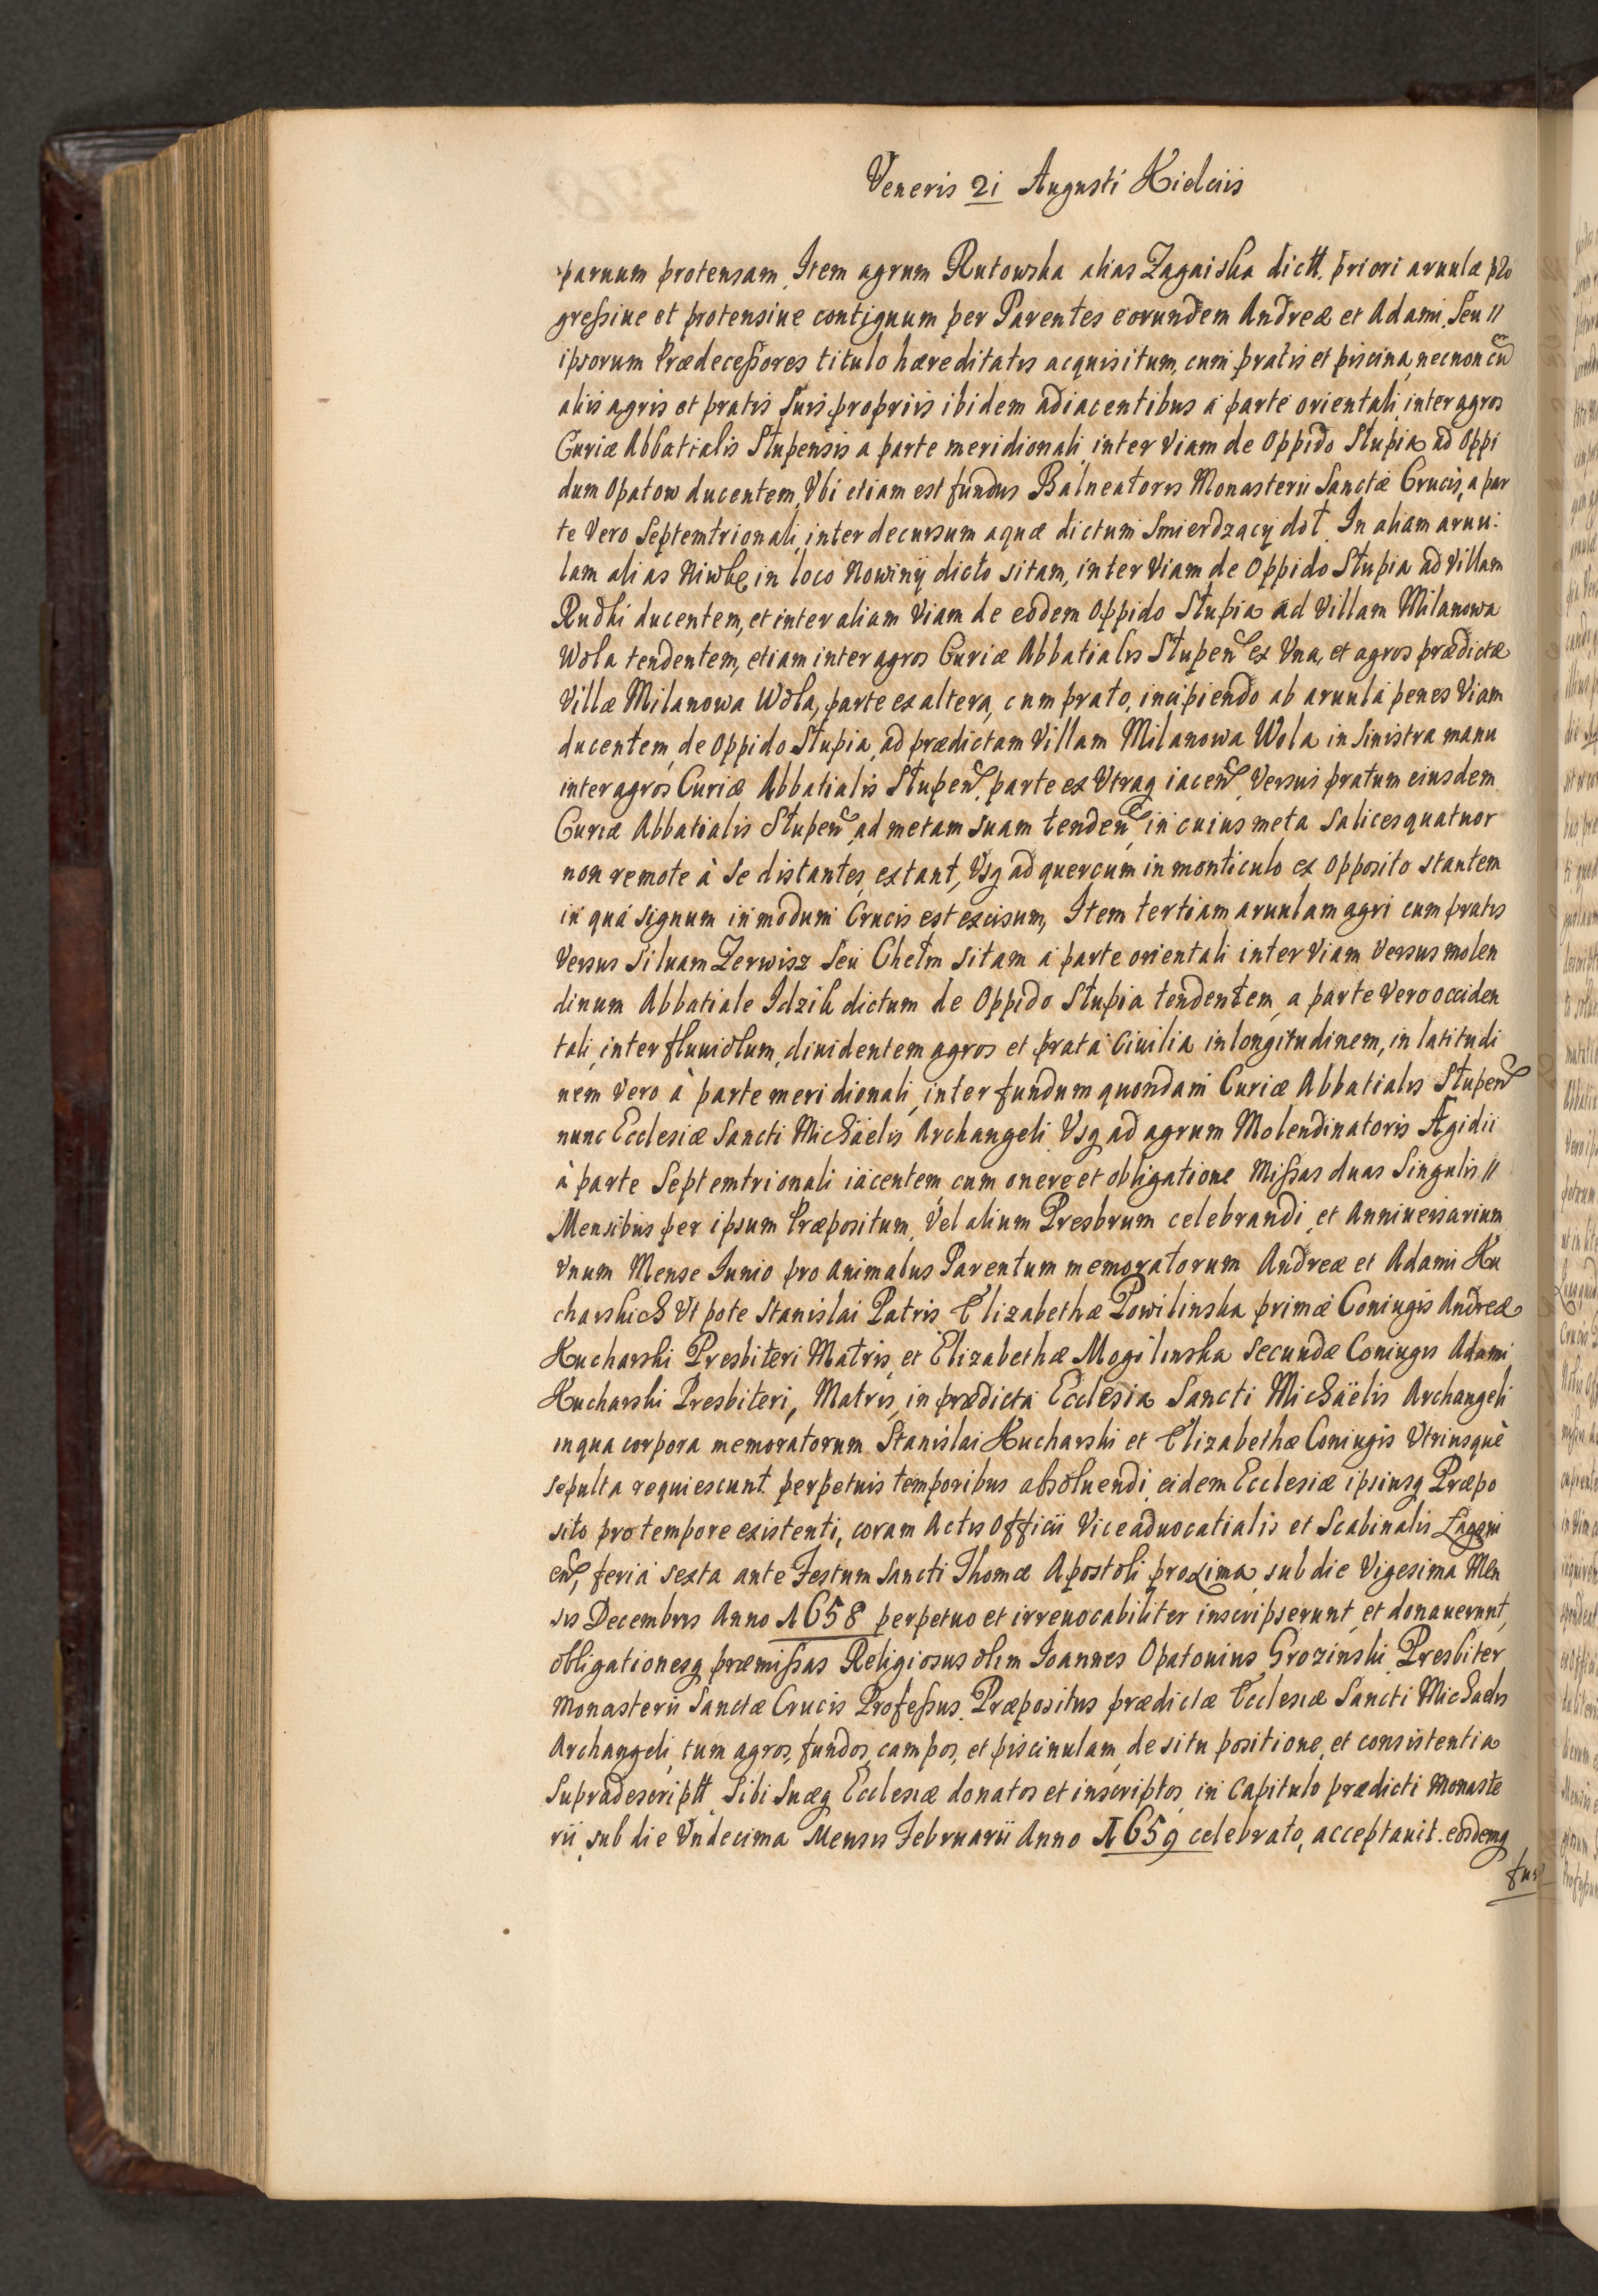 Veneris 21 Augusti Kielciis
paruum protensam. Item agrum Rutowska alias Zagaiska dictt. priori aruulæ pro
gressiue et protensiue contiguum per Parentes eorundem Andreæ et Adami. Seu //
ipsorum Prædecessores titulo hæreditatis acquisitum, cum pratis et piscina, necnon cũ
aliis agris et pratis Juris proprii ibidem adiacentibus a parte orientali, inter agros
Curiæ Abbatialis Slupensis a parte meridionali, inter Viam de Oppido Slupia ad Oppi
dum Opatow ducentem, Vbi etiam est fundus Balneatoris Monasterii Sanctæ Crucis, a par
te Vero Septemtrionali, inter decursum aquæ dictum Smierdzący doł. In aliam aruu:
lam alias Niwkę in loco Nowiny dicto sitam, inter Viam de Oppido Slupia ad Villam
Rudki ducentem, et inter aliam Viam de eodem Oppido Slupia ad Villam Milanowa
Wola tendentem, etiam inter agros Curiæ Abbatialis Slupen ex Vna, et agros prædictæ
Villæ Milanowa Wola, parte ex altera, cum prato, incipiendo ab aruula penes Viam
ducentem de Oppido Slupia, ad prædictam Villam Milanowa Wola in Sinistra manu
inter agros Curiæ Abbatialis Slupen. parte ex Vtraq iacen, Versus pratum eiusdem
Curiæ Abbatialis Slupen, ad metam suam tenden, in cuius meta Salices quatuor
non remote à Se distantes, extant, Vsq ad quercum in monticulo ex Opposito stantem
in qua signum in modum Crucis est excisum, Item tertiam aruulam agri cum pratis
Versus Siluam Zerwisz Seu Chełm sitam a parte orientali inter Viam Versus molen
dinum Abbatiale Idzik dictum de Oppido Slupia tendentem, a parte Vero occiden
tali, inter fluuiolum, diuidentem agros et prata Ciuilia in longitudinem, in latitudi
nem Vero à parte meridionali, inter fundum quondam Curiæ Abbatialis Slupen
nunc Ecclesiæ Sancti Michäelis Archangeli Vsq ad agrum Molendinatoris Ægidii
à parte Septemtrionali iacentem cum onere et obligatione Missas duas Singulis //
Mensibus per ipsum Præpositum, Vel alium Presbrum celebrandi, et Anniuersarium
Vnum Mense Iunio pro animabus Parentum memoratorum Andreæ et Adami Ku
charskich Vt pote Stanislai Patris Elizabethæ Powilinska primæ Coniugis Andreæ
Kucharski Presbiteri Matris, et Elizabethæ Mogilinska Secundæ Coniugis Adami
Kucharski Presbiteri, Matris, in prædicta Ecclesia Sancti Michäelis Archangeli
in qua corpora memoratorum Stanislai Kucharski et Elizabethæ Coniugis Vtriusquè
sepulta requiescunt perpetuis temporibus absoluendi, eidem Ecclesiæ ipsiusq Præpo
sito pro tempore existenti, coram Actis Officii Viceaduocatialis et Scabinalis Łagoui
en, feria sexta ante Festum Sancti Thomæ Apostoli proxima, sub die Vigesima Men
sis Decembris Anno 1658 perpetuo et irreuocabiliter inscripserunt, et donauerunt,
obligationesq præmissas Religiosus olim Ioannes Opatouius Grozinski Presbiter
Monasterii Sanctæ Crucis Professus, Præpositus prædictæ Ecclesiæ Sancti Michaelis
Archangeli, tum agros, fundos, campos, et piscinulam, de situ positione, et consistentia
Supradescriptt Sibi Suæq Ecclesiæ donatos et inscriptos, in Capitulo prædicti Monaste
rii, sub die Vndecima Mensis Februarii Anno 1659 celebrato, acceptauit. eosdemq
fun